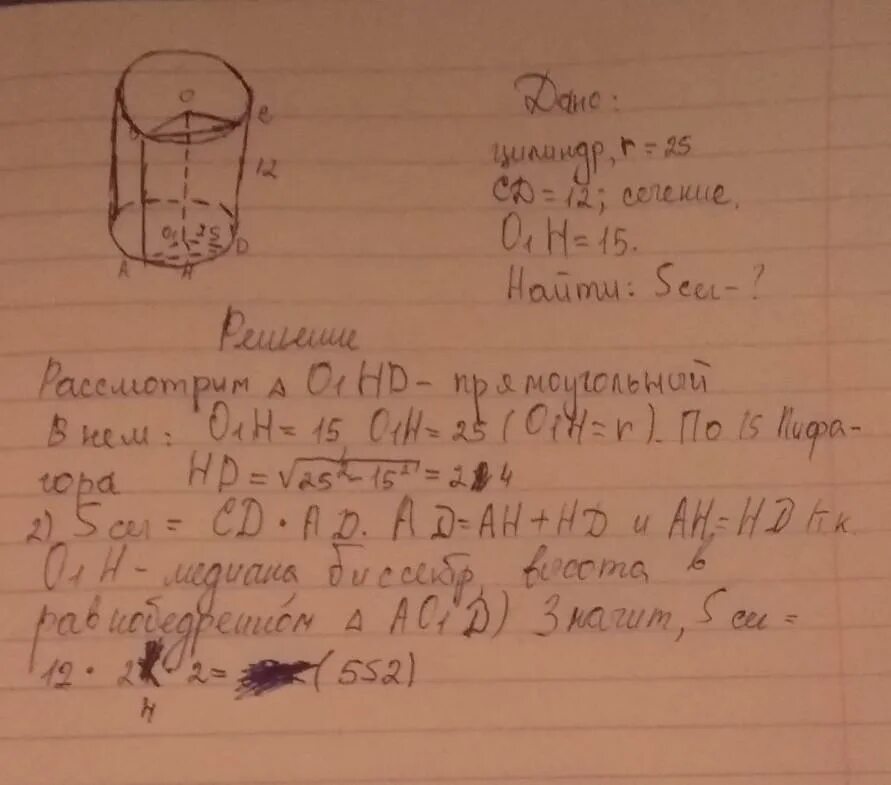 O
C
12
O1 25
A
H
D
Дано:
цилиндр, r = 25
CD = 12; сечение.
O1H = 15.
Найти: Sсеч - ?
Решение
Рассмотрим △ O1HD - прямоугольный
В нем: O1H = 15 O1H = 25 (O1H = r). По Пифа-
гора HD = √25² - 15² = 24
2) Sсеч = CD · AD. AD = AH + HD и AH = HD т.к.
O1H - медиана, биссектр, высота в
равнобедренном △ AO1D) Значит, Sсеч =
12 · 2 · 2 = (552)
4